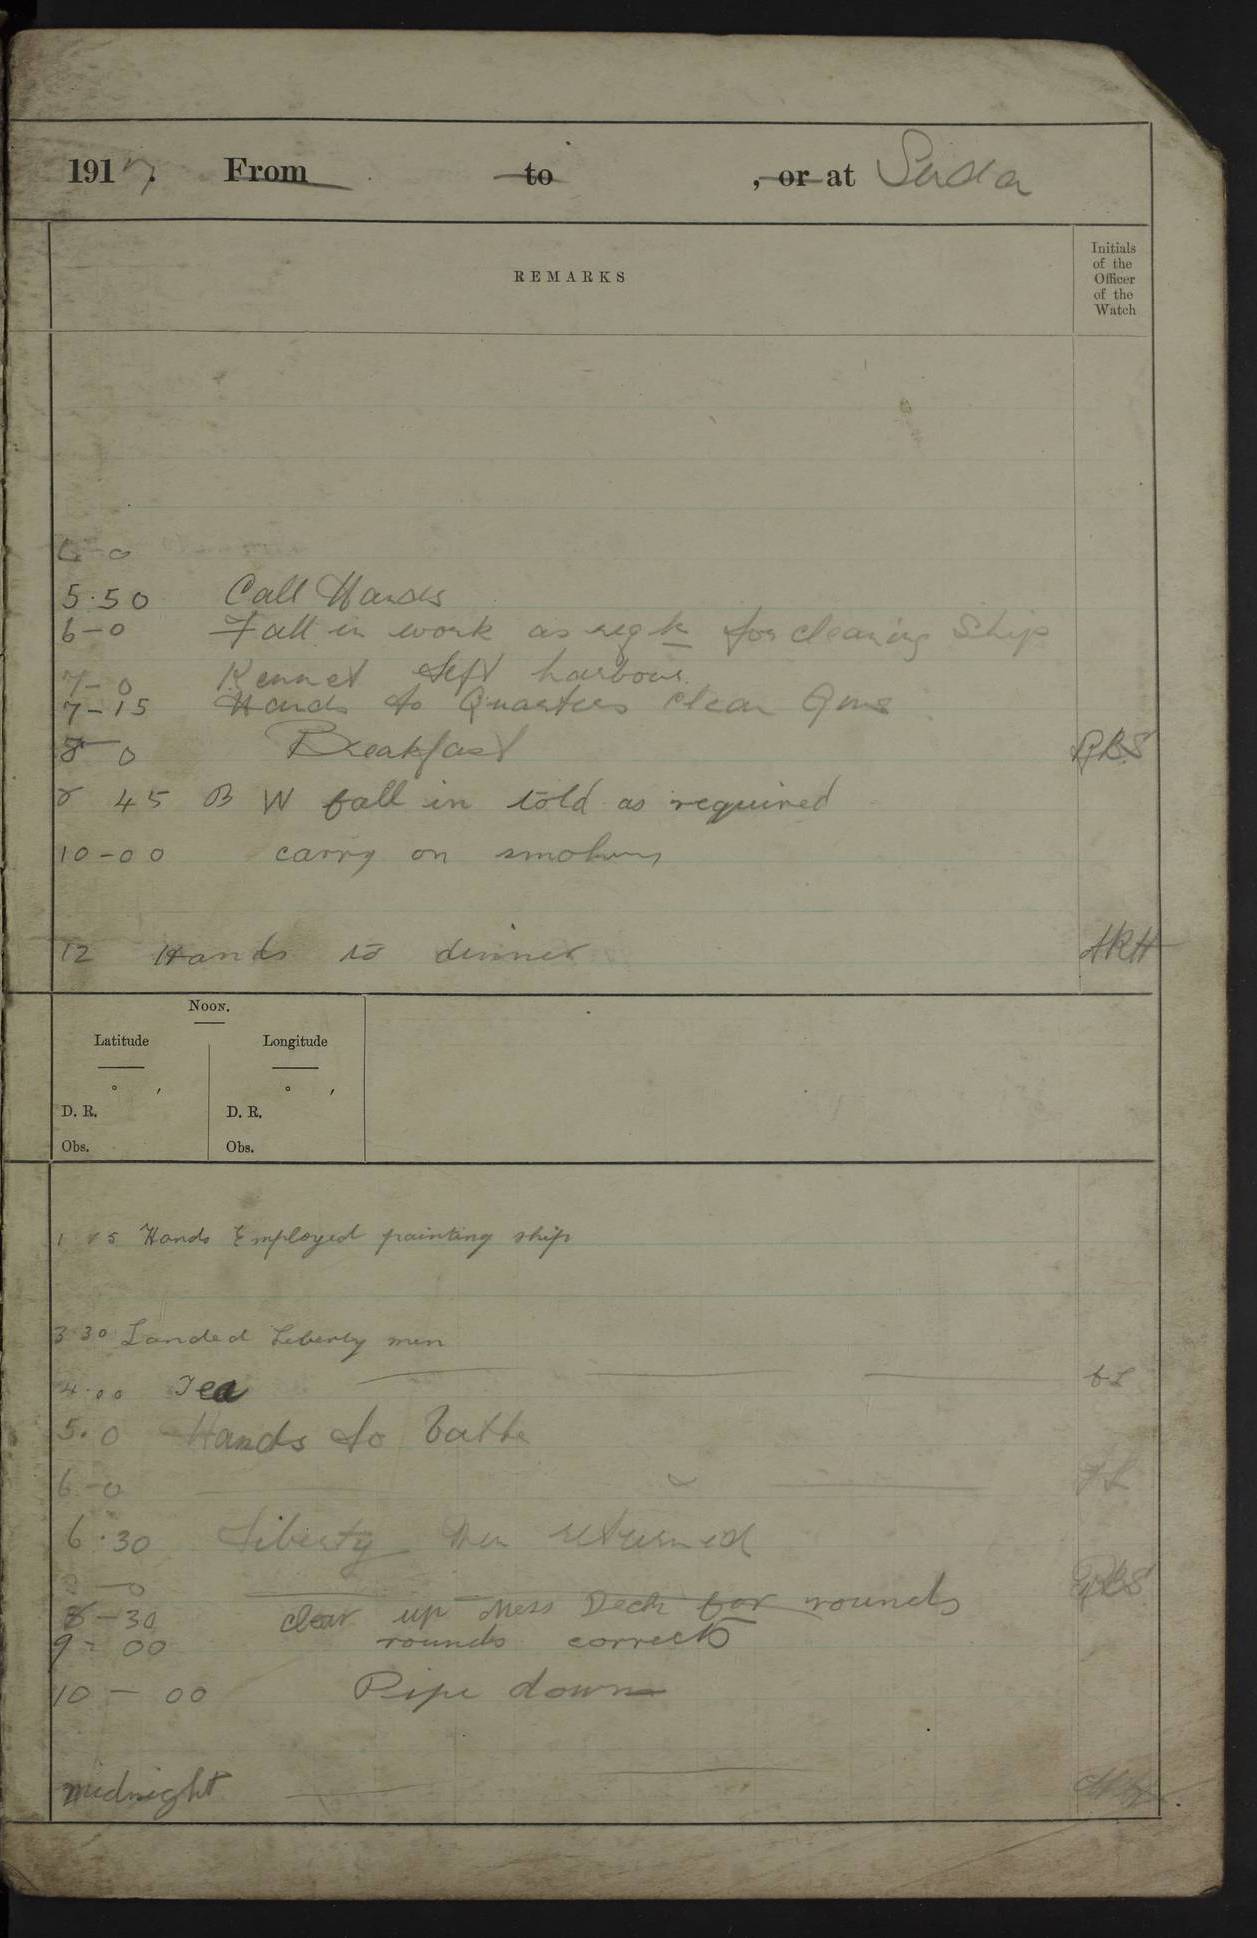 1917. From to , or at Suda
REMARKS
Initials
of the
Officer
of the
Watch
6-0
5.50 Call Hands
6-0 Fall in work as reqd for cleaning Ship
7-0 Kennet left harbour.
7-15 Hands to Quarters clean Guns
8 0 Breakfast RBS
8 45 B W fall in told as required
10-00 carry on smoking
12 Hands to dinner ARH
Noon.
Latitude Longitude
° ′ ° ′
D. R. D. R.
Obs. Obs.
Hands Employed painting ship
3 30 Landed Liberty men
4.00 Tea
5.0 Hands to bathe
6-0
6.30 Liberty Men returned
8-0 RBS
8-30 clear up Mess Deck for rounds
9-00 rounds correct
10-00 Pipe down
midnight